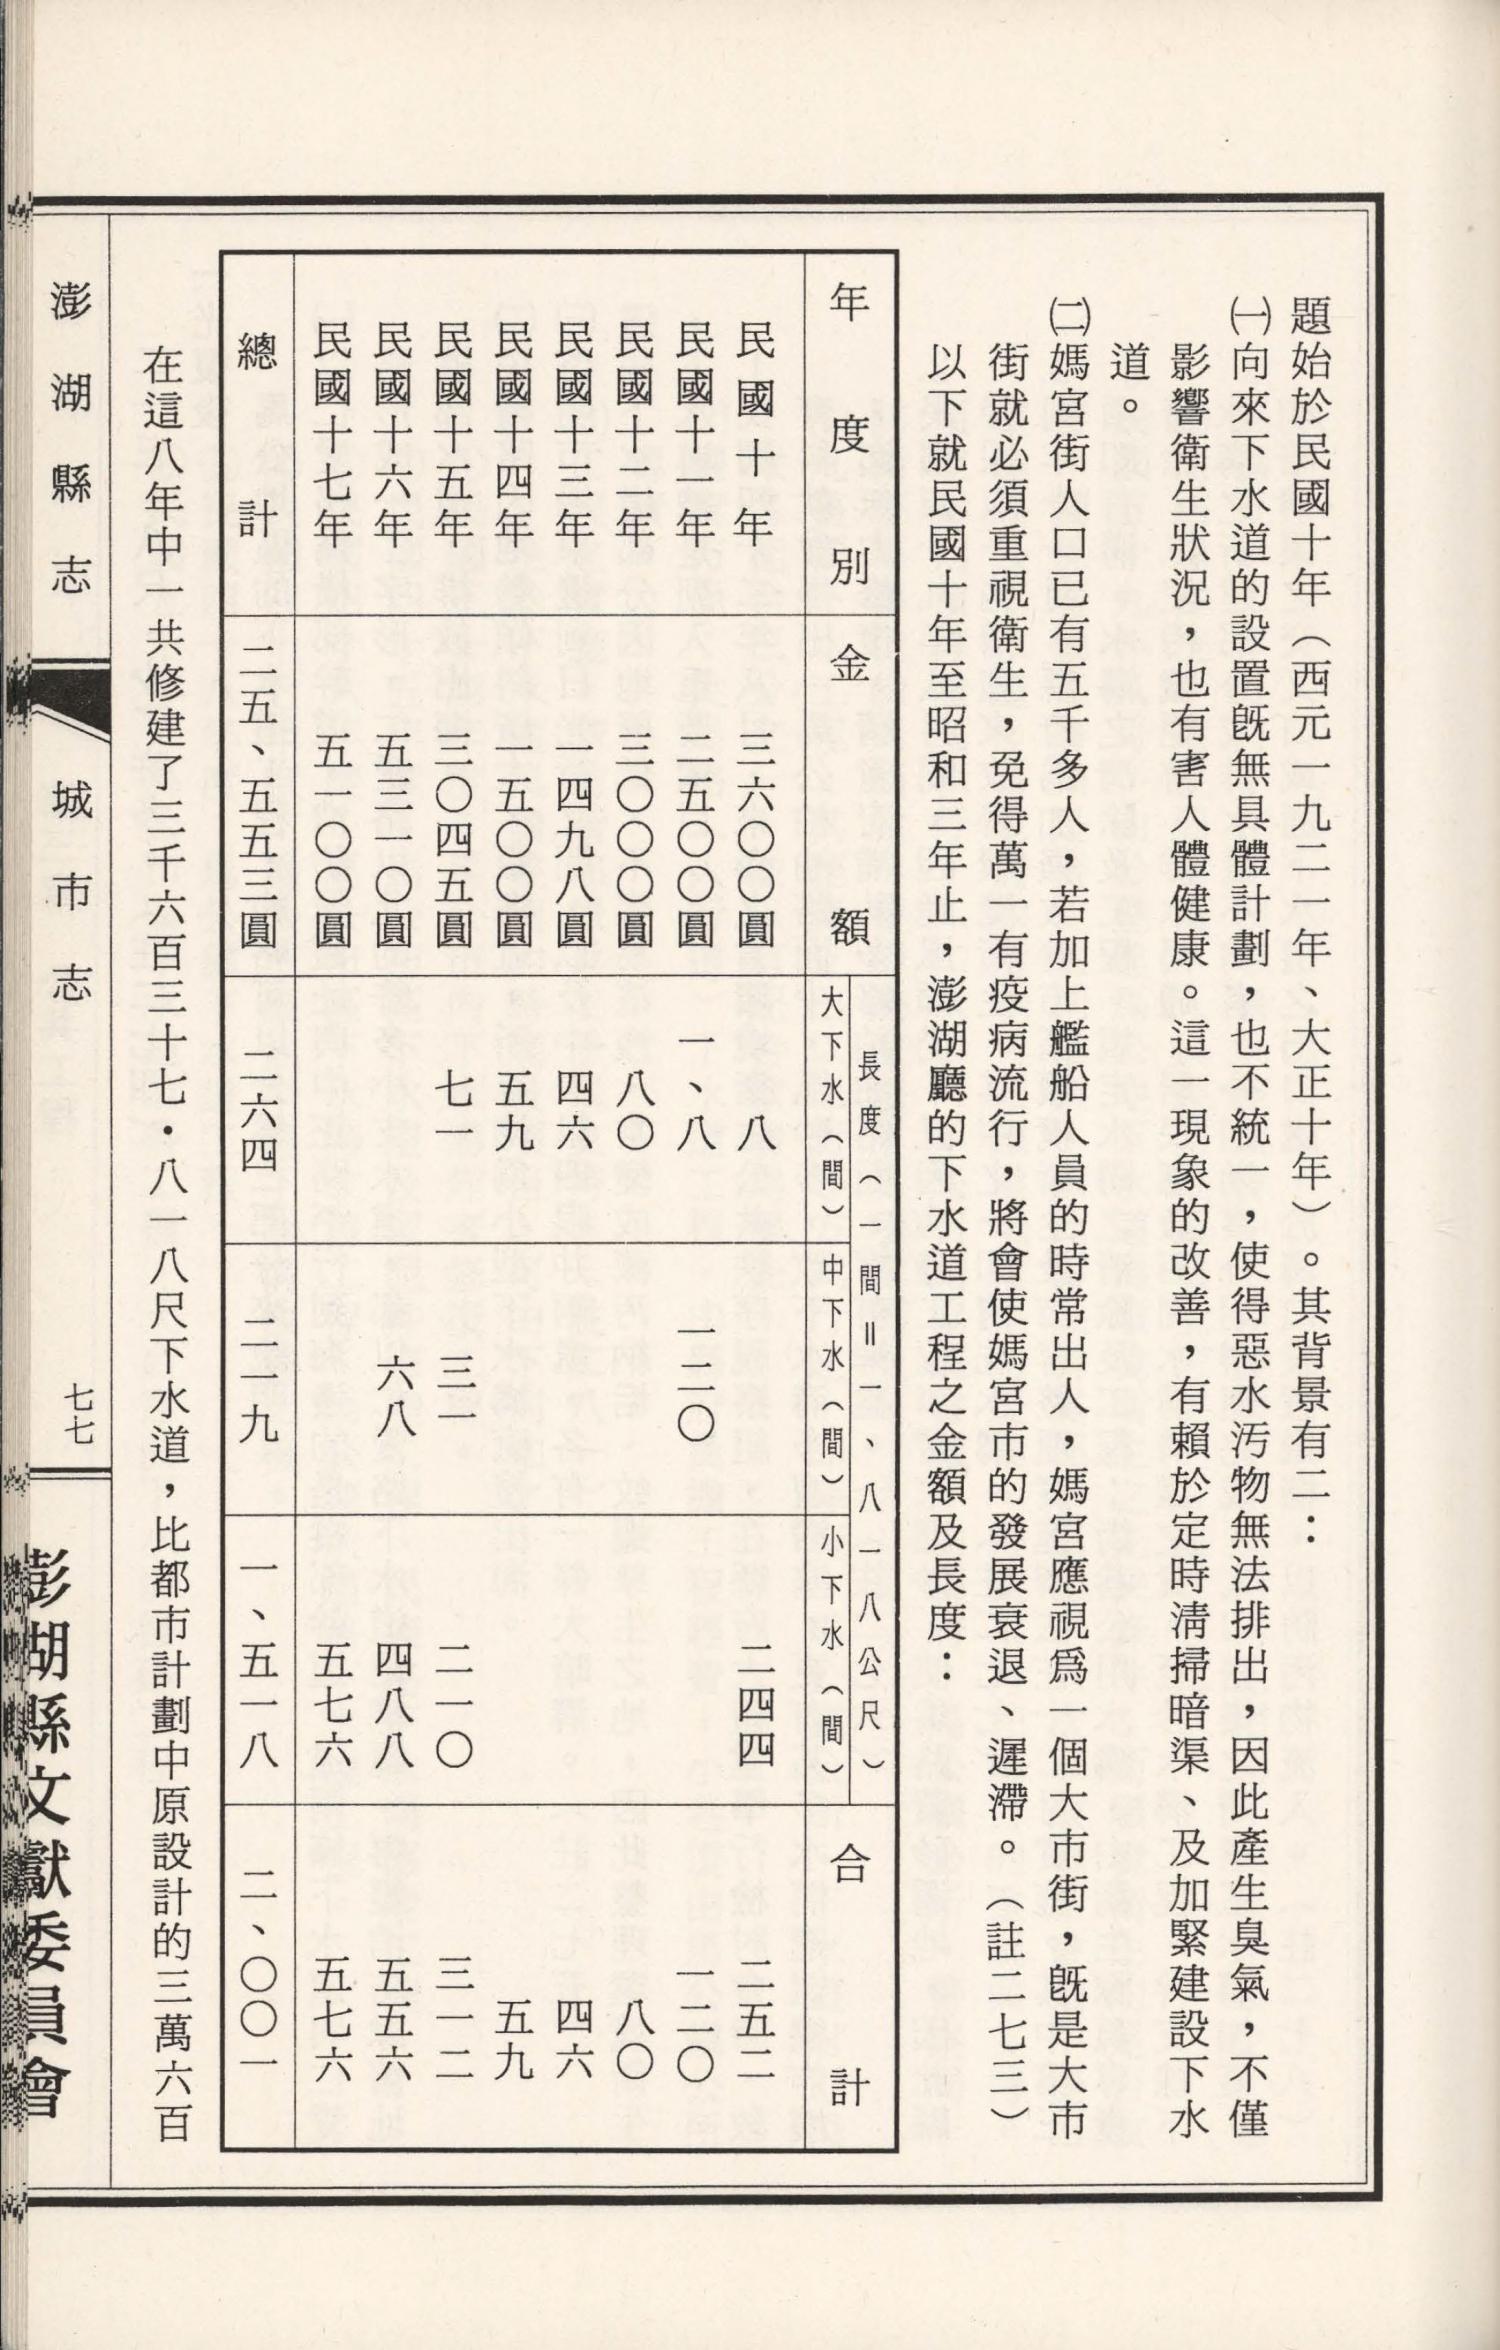 題始於民國十年（西元一九二一年、大正十年）。其背景有二：
㈠向來下水道的設置既無具體計劃，也不統一，使得惡水污物無法排出，因此產生臭氣，不僅
影響衛生狀況，也有害人體健康。這一現象的改善，有賴於定時清掃暗渠、及加緊建設下水
道。
㈡媽宮街人口已有五千多人，若加上艦船人員的時常出人，媽宮應視爲一個大市街，既是大市
街就必須重視衛生，免得萬一有疫病流行，將會使媽宮市的發展衰退、遲滯。（註二七三）
以下就民國十年至昭和三年止，澎湖廳的下水道工程之金額及長度：
年度別 金額 長度（一間＝一、八一八公尺） 合計
大下水（間） 中下水（間） 小下水（間）
民國十年 三六〇〇圓 八 二四四 二五二
民國十一年 二五〇〇圓 一、八 一二〇 一二〇
民國十二年 三〇〇〇圓 八〇 八〇
民國十三年 一四九八圓 四六 四六
民國十四年 一五〇〇圓 五九 五九
民國十五年 三〇四五圓 七一 三一 二一〇 三一二
民國十六年 五三一〇圓 六八 四八八 五五六
民國十七年 五一〇〇圓 五七六 五七六
總計 二五、五五三圓 二六四 二一九 一、五一八 二、〇〇一
在這八年中一共修建了三千六百三十七・八一八尺下水道，比都市計劃中原設計的三萬六百
澎湖縣志 城市志 七七 澎湖縣文獻委員會